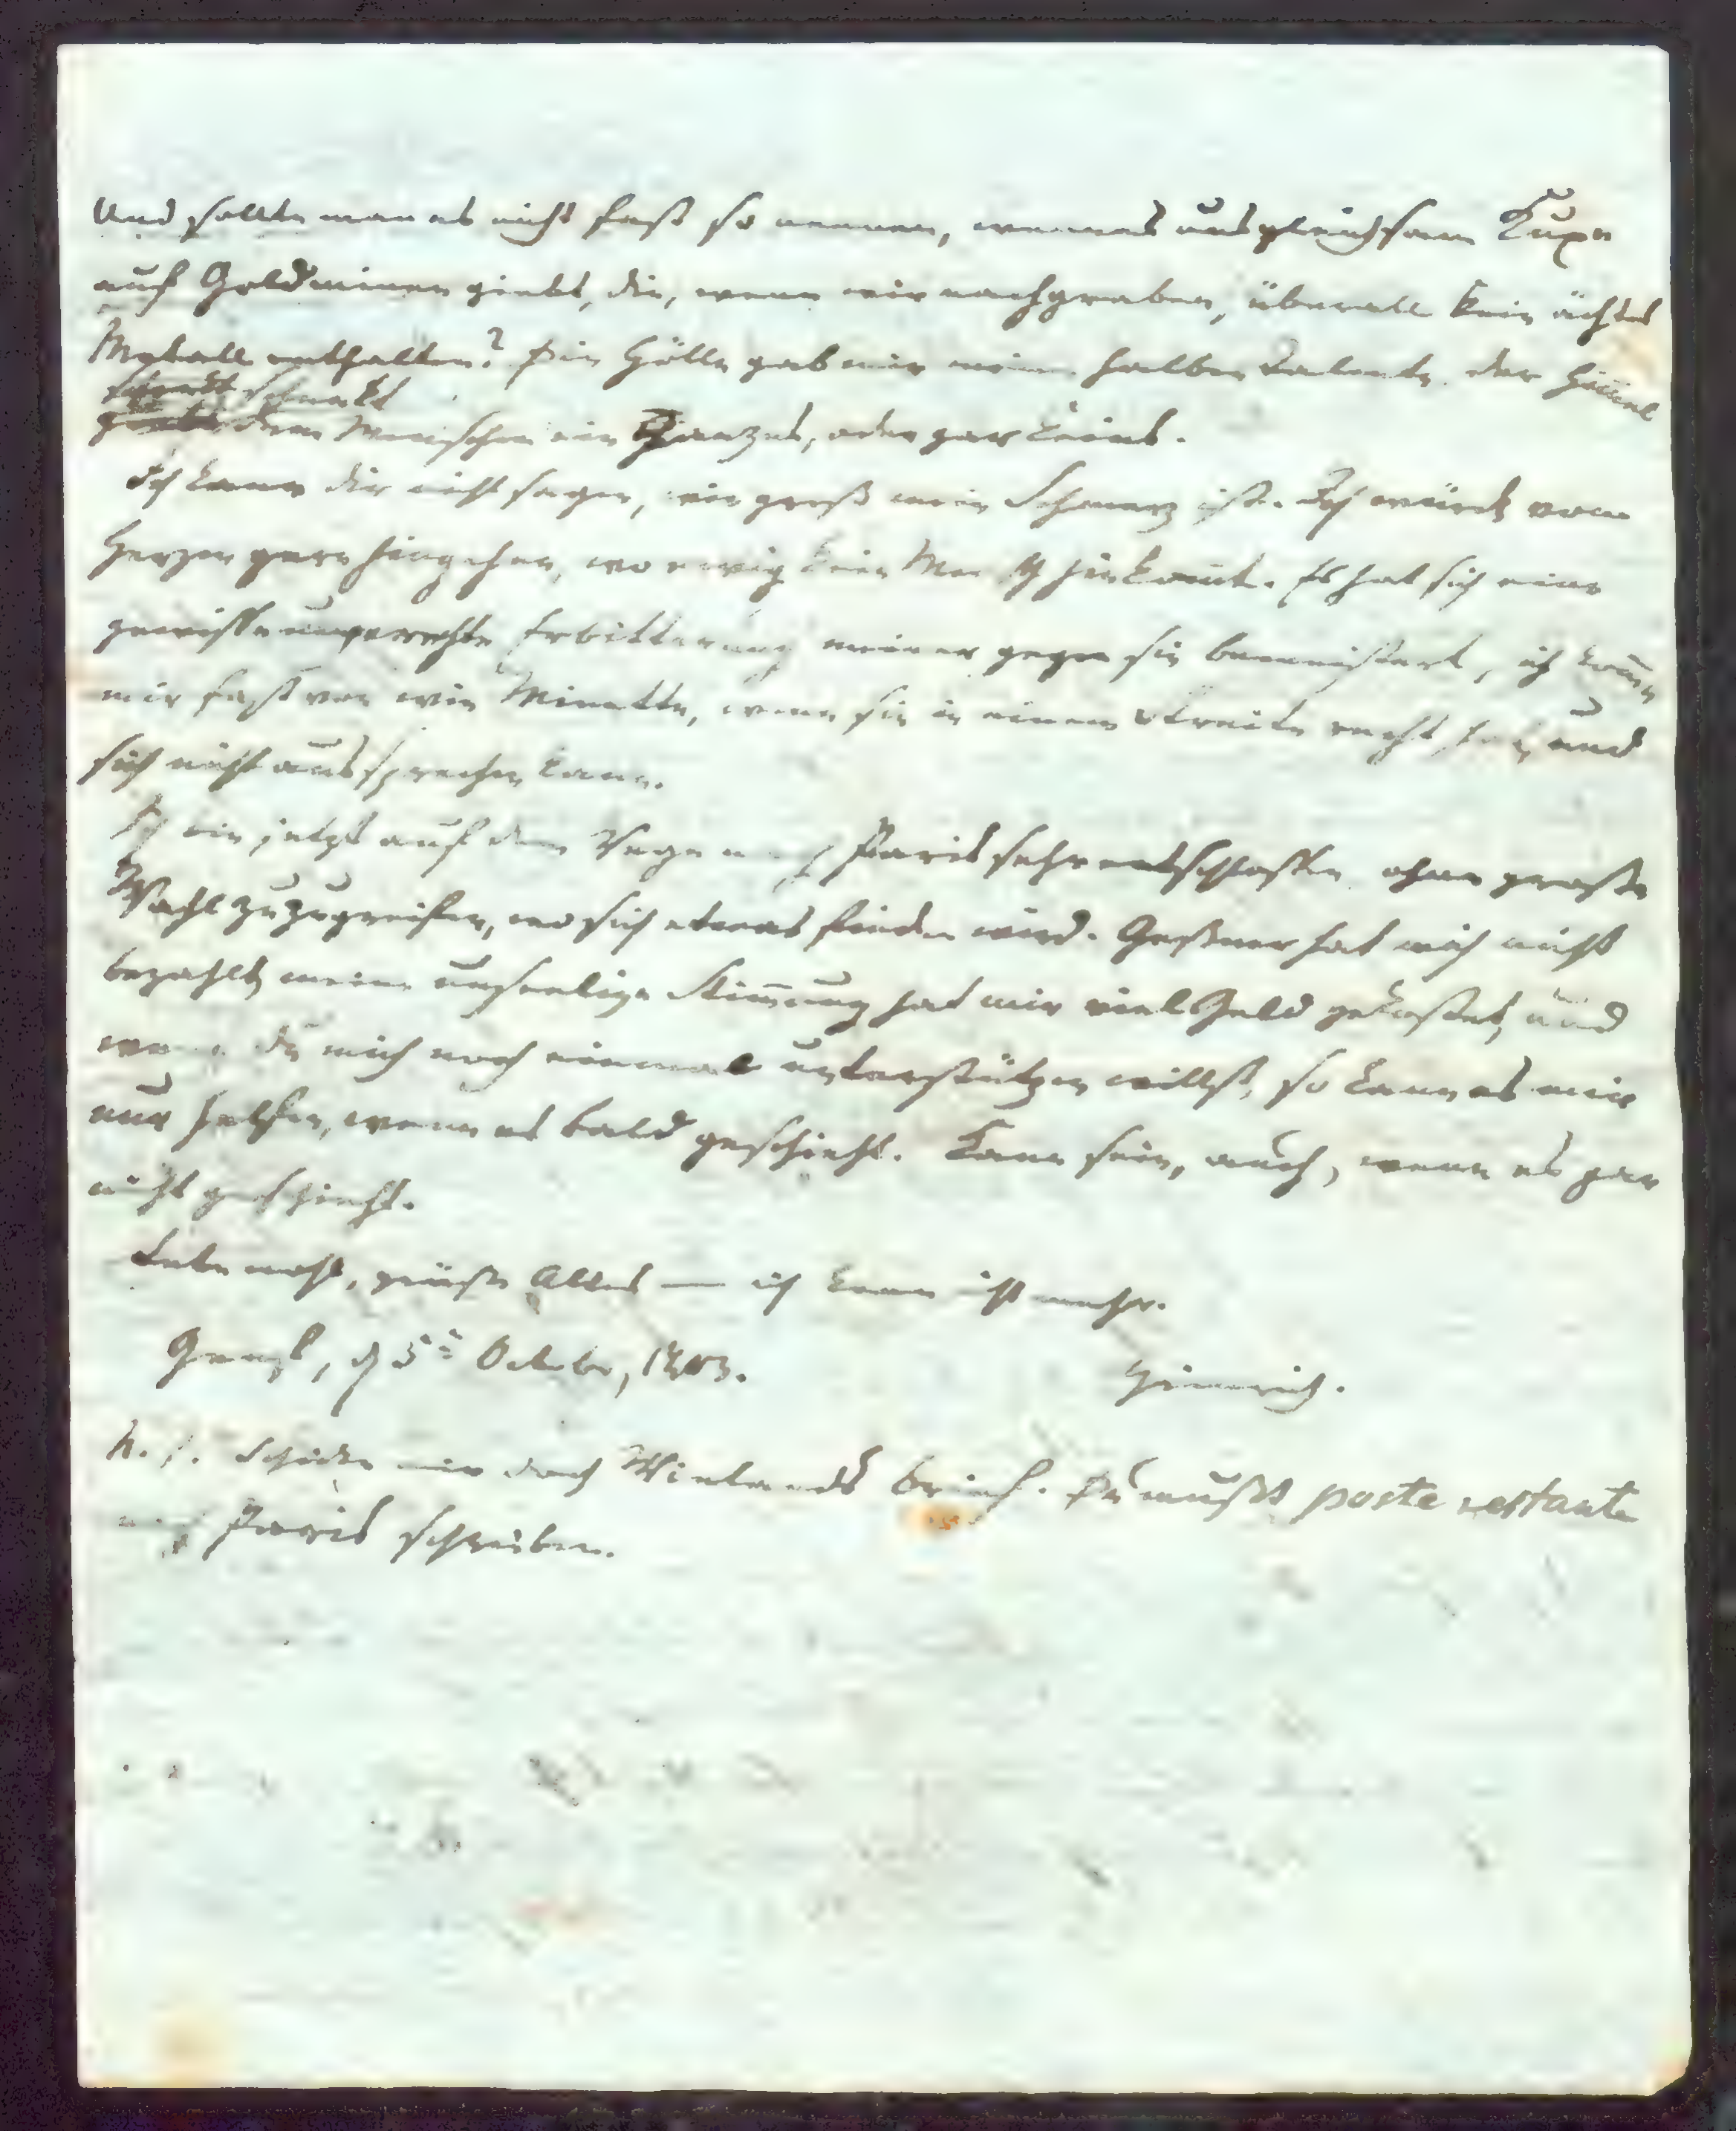 Und sollte man es nicht fast so nennen, wenn es uns gleichsam Kuxe
auf Goldminen giebt, die, wenn wir nachgraben, überall kein ächtes
Metall enthalten? Die Hölle gab mir meine halben Talente, der Him̄el
schenkt
dem Menschen ein Ganzes, oder gar keins.
Ich kann dir nicht sagen, wie groß mein Schmerz ist. Ich würde vom
Herzen gern hingehen, wo ewig kein Mensch hinkom̄t. Es hat sich eine
gewisse ungerechte Erbitterung meiner gegen sie bemeistert, ich kom̄e
mir fast vor wie Minette, wenn sie in einem Streite recht hat, und
sich nicht aussprechen kann.
Ich bin jetzt auf dem Wege nach Paris sehr entschlossen, ohne große
Wahl zuzugreifen, wo sich etwas finden wird. Geßner hat mich nicht
bezahlt, meine unseelige Stim̄ung hat mir viel Geld gekostet, und
wenn du mich noch einmal unterstützen willst, so kann es mir
nur helfen, wenn es bald geschieht. Kann sein, auch, wenn es gar
nicht geschieht.
Lebe wohl, grüße Alles — ich kann nicht mehr.
Genf, d 5t October, 1803.
Heinrich.
N. S. Schicke mir doch Wielands Brief. Du mußt poste restante
nach Paris schreiben.